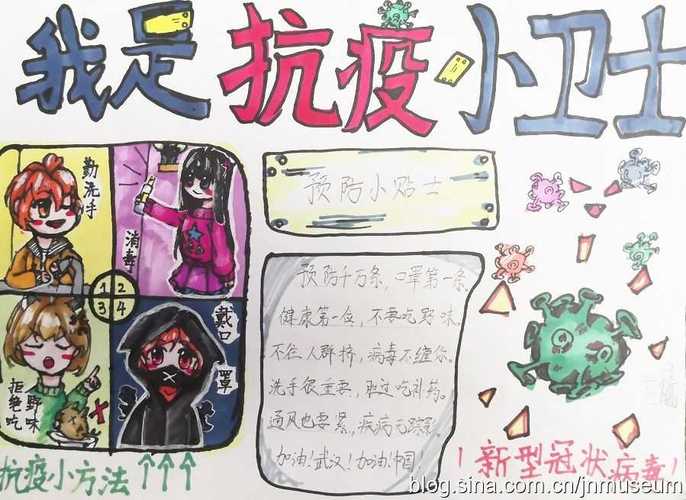 我是抗疫小卫士
勤洗手
消毒
1 2
3 4
拒绝吃野味
戴口罩
抗疫小方法↑↑↑
预防小贴士
预防千万条，口罩第一条.
健康第一位，不要吃野味.
不在人群挤，病毒不缠你。
洗手很重要，胜过吃补药。
通风也要紧，疾病无踪影。
加油！武汉！加油！中国！
！新型冠状病毒！
blog.sina.com.cn/jnmuseum